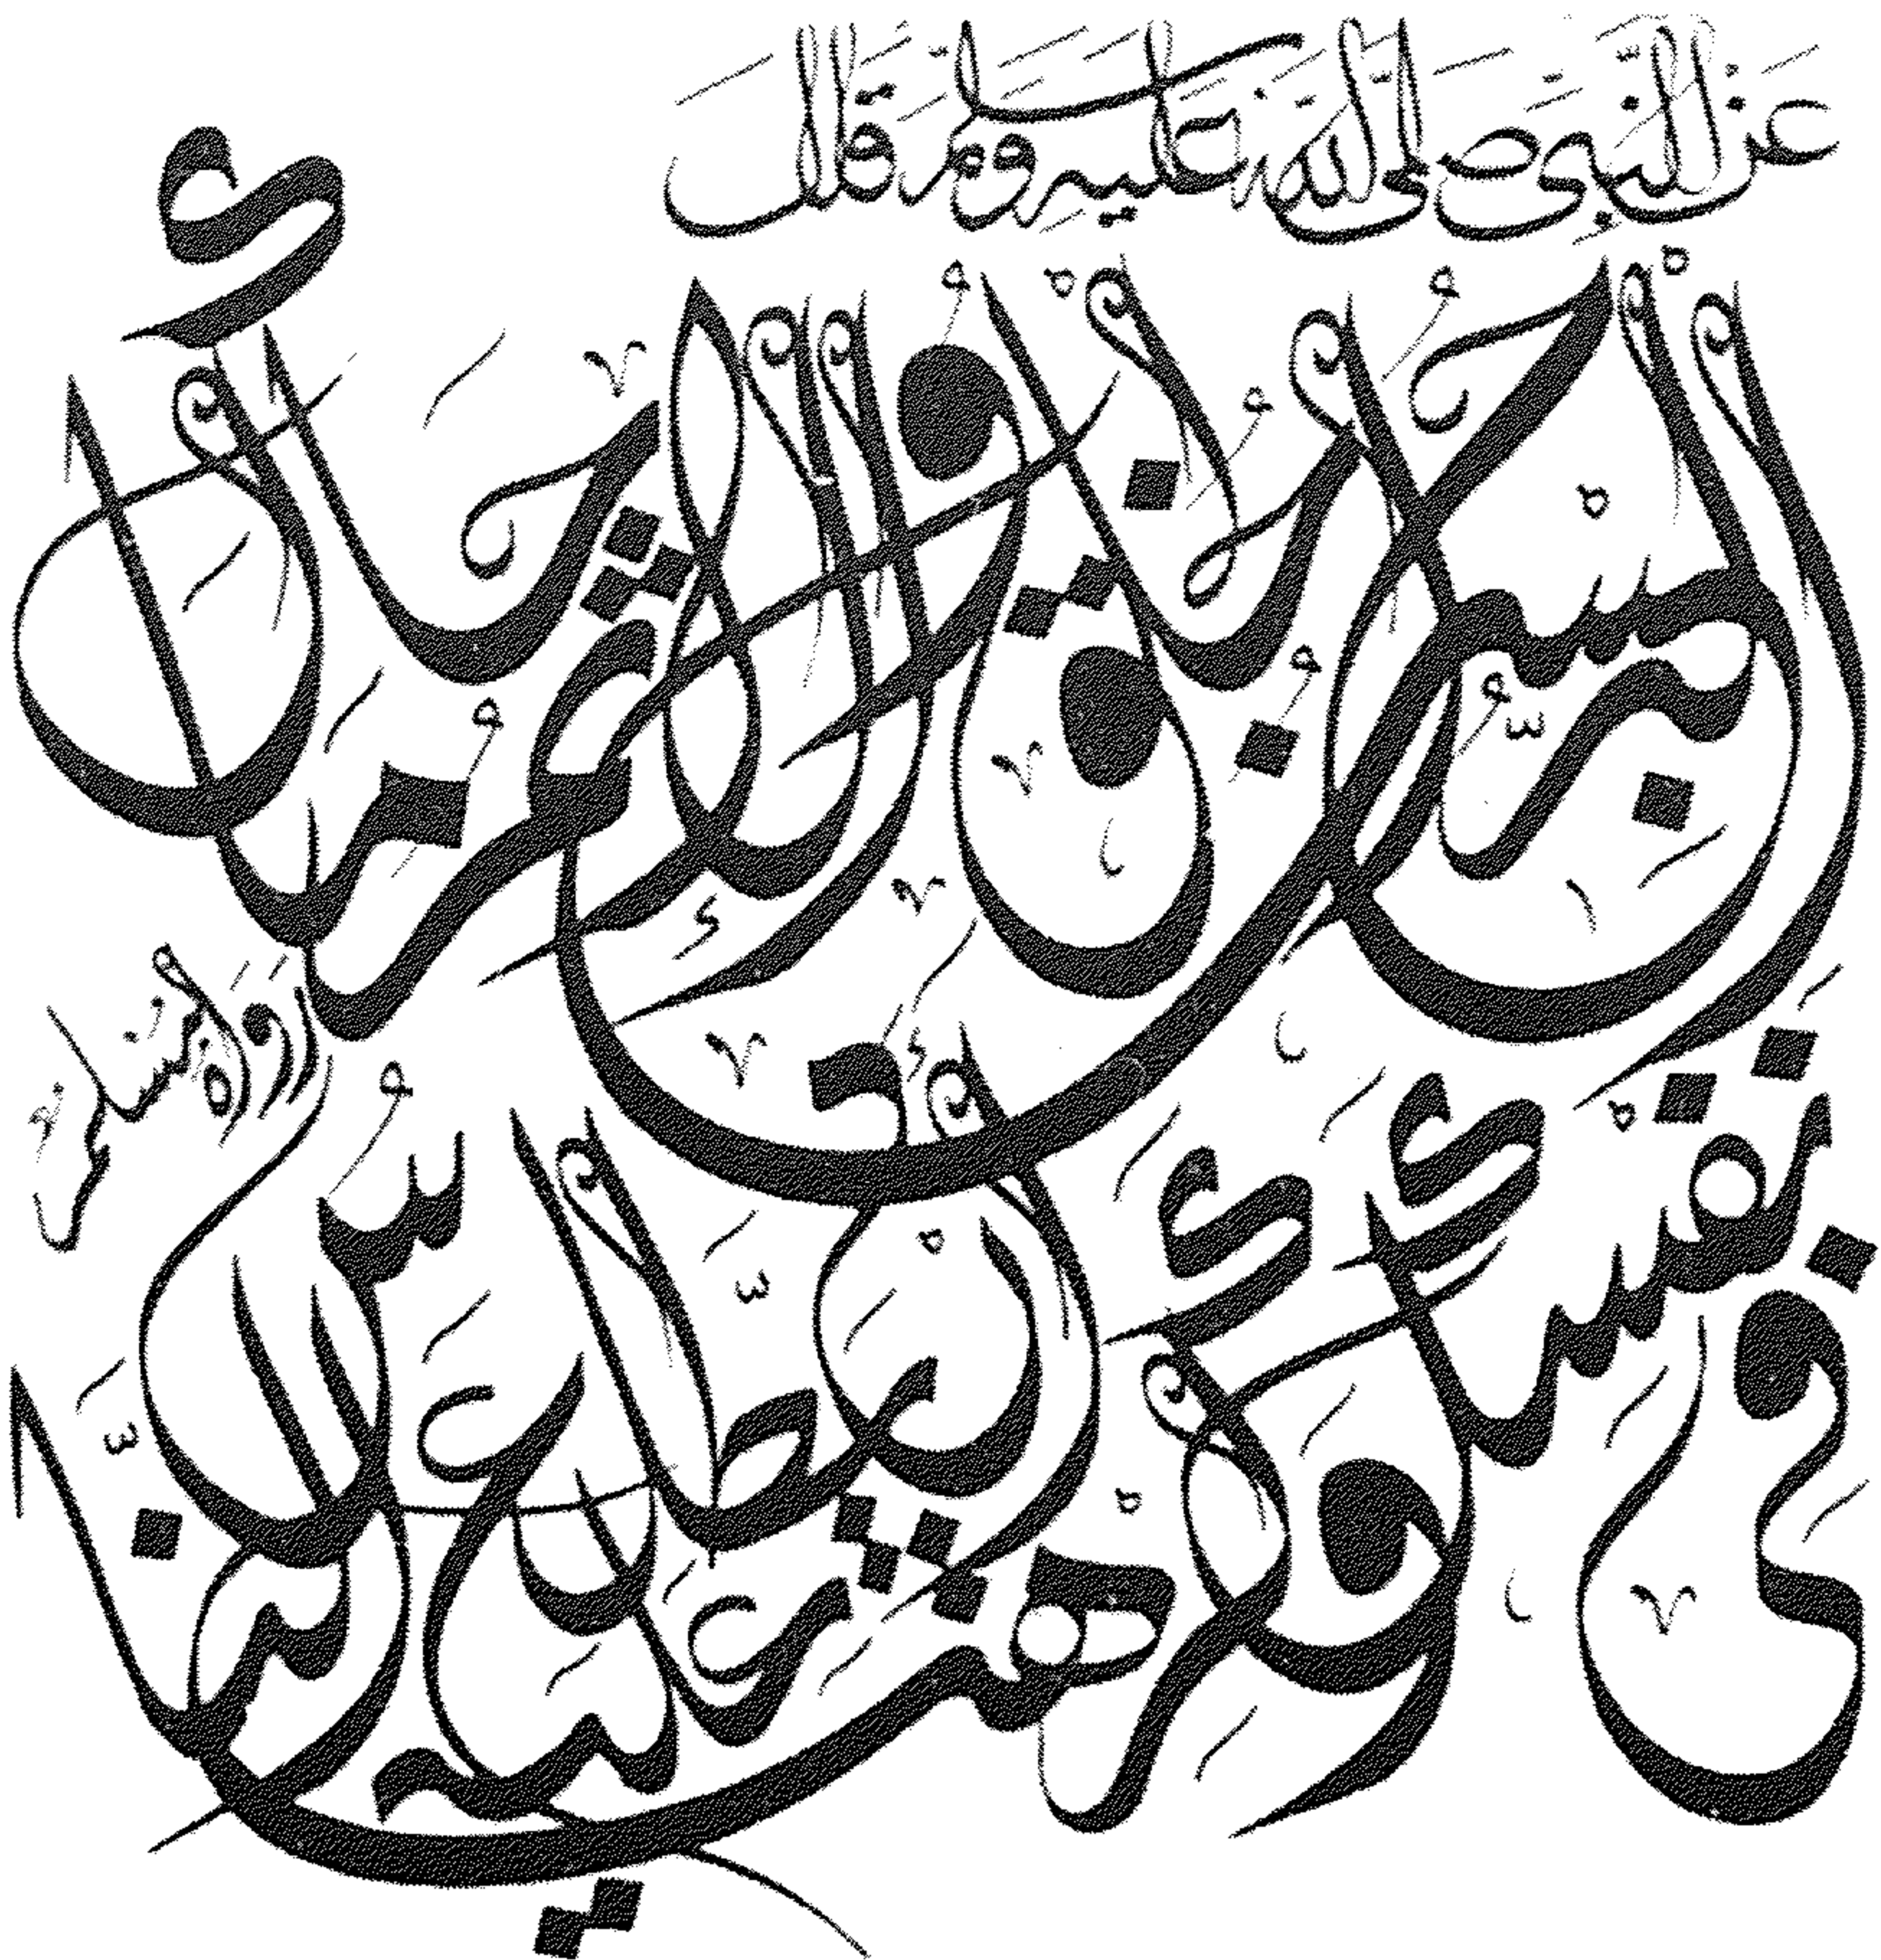 عَنِ النَّبِيِّ صَلَّى اللَّهُ عَلَيْهِ وَسَلَّمَ قَالَ
الْبِرُّ حُسْنُ الْخُلُقِ وَالْإِثْمُ مَا حَاكَ
فِي نَفْسِكَ وَكَرِهْتَ أَنْ يَطَّلِعَ عَلَيْهِ النَّاسُ
رَوَاهُ مُسْلِمٌ